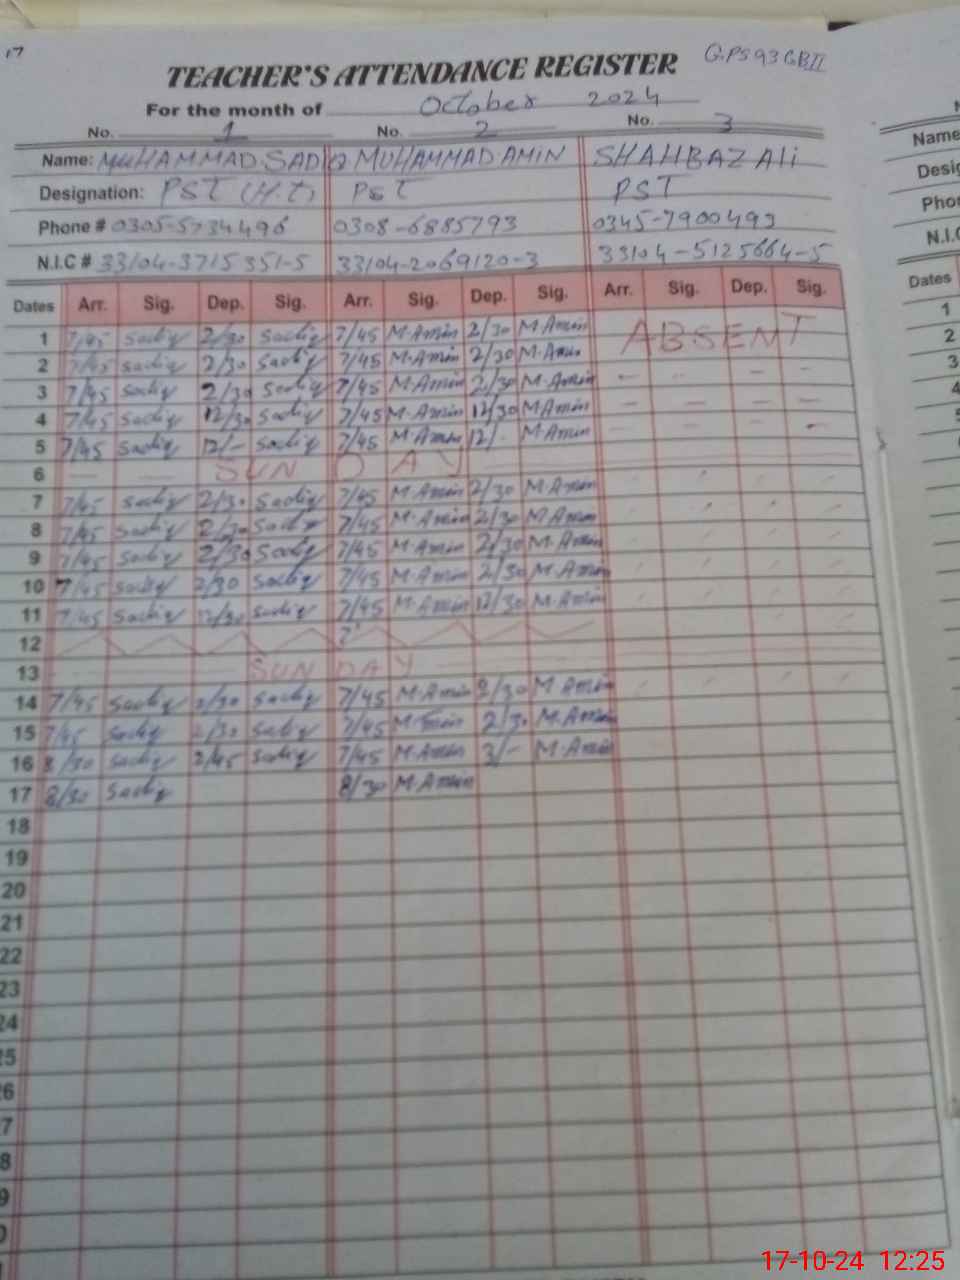 17
TEACHER'S ATTENDANCE REGISTER GPS 93 GB II
For the month of October 2024
No. 1 No. 2 No. 3
Name: MUHAMMAD SADIQ MUHAMMAD AMIN SHAHBAZ Ali
Designation: PST (H.t) PST PST
Phone # 0305-5734496 0308-6885793 0345-7900499
N.I.C # 33104-3715351-5 33104-2069120-3 33104-5125664-5
Dates Arr. Sig. Dep. Sig. Arr. Sig. Dep. Sig. Arr. Sig. Dep. Sig.
1 7/45 sadiq 2/30 sadiq 7/45 M.Amin 2/30 M.Amin ABSENT
2 7/45 sadiq 2/30 sadiq 7/45 M.Amin 2/30 M.Amin
3 7/45 sadiq 2/30 sadiq 7/45 M.Amin 2/30 M.Amin — — —
4 7/45 sadiq 12/30 sadiq 7/45 M.Amin 12/30 M.Amin — — — —
5 7/45 sadiq 12/- sadiq 7/45 M.Amin 12/- M.Amin — — — -
6 SUNDAY
7 7/45 sadiq 2/30 sadiq 7/45 M.Amin 2/30 M.Amin
8 7/45 sadiq 2/30 sadiq 7/45 M.Amin 2/30 M.Amin
9 7/45 sadiq 2/30 sadiq 7/45 M.Amin 2/30 M.Amin
10 7/45 sadiq 2/30 sadiq 7/45 M.Amin 2/30 M.Amin
11 7/45 sadiq 12/30 sadiq 7/45 M.Amin 12/30 M.Amin
12
13 SUNDAY
14 7/45 sadiq 2/30 sadiq 7/45 M.Amin 2/30 M.Amin
15 7/45 sadiq 2/30 sadiq 7/45 M.Amin 2/30 M.Amin
16 8/30 sadiq 2/45 sadiq 7/45 M.Amin 3/- M.Amin
17 8/30 sadiq 8/30 M.Amin
18
19
20
21
22
23
24
25
26
7
8
9
0
Name
Desig
Pho
N.I.C
Dates
1
2
3
4
17-10-24 12:25